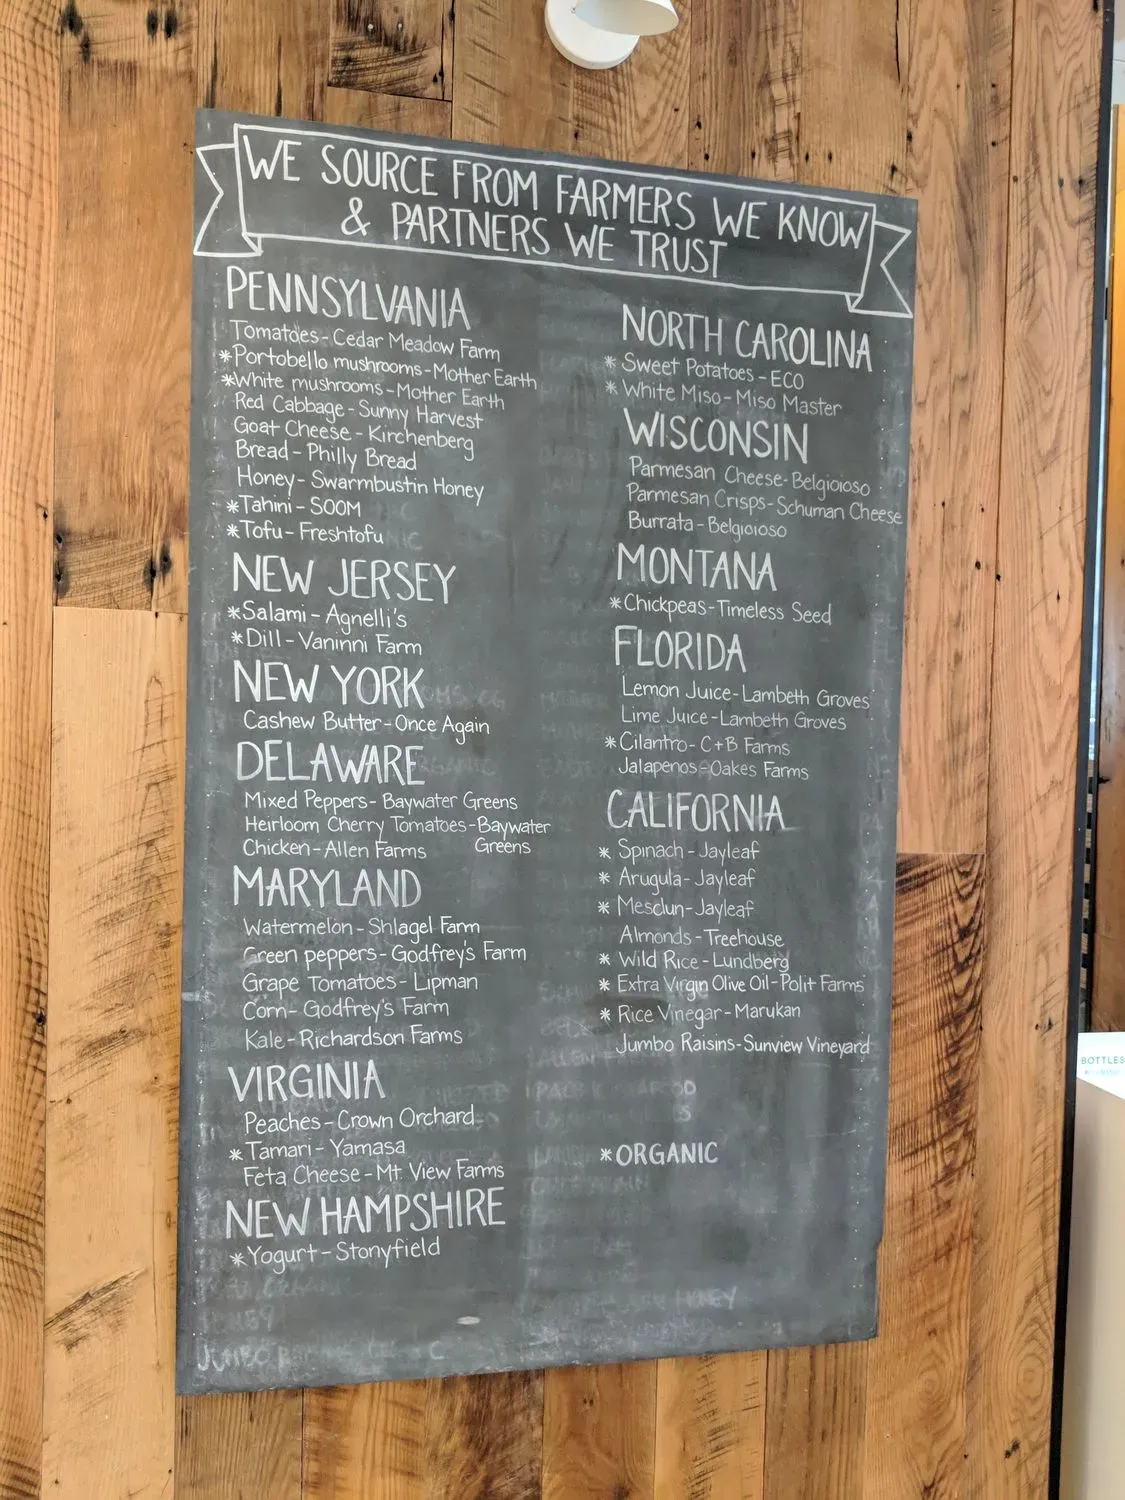 WE SOURCE FROM FARMERS WE KNOW
& PARTNERS WE TRUST
PENNSYLVANIA
Tomatoes - Cedar Meadow Farm
*Portobello mushrooms - Mother Earth
*White mushrooms - Mother Earth
Red Cabbage - Sunny Harvest
Goat Cheese - Kirchenberg
Bread - Philly Bread
Honey - Swarmbustin Honey
*Tahini - SOOM
*Tofu - Freshtofu
NEW JERSEY
*Salami - Agnelli's
*Dill - Vaninni Farm
NEW YORK
Cashew Butter - Once Again
DELAWARE
Mixed Peppers - Baywater Greens
Heirloom Cherry Tomatoes - Baywater
Greens
Chicken - Allen Farms
MARYLAND
Watermelon - Shlagel Farm
Green peppers - Godfrey's Farm
Grape Tomatoes - Lipman
Corn - Godfrey's Farm
Kale - Richardson Farms
VIRGINIA
Peaches - Crown Orchard
*Tamari - Yamasa
Feta Cheese - Mt. View Farms
NEW HAMPSHIRE
*Yogurt - Stonyfield
NORTH CAROLINA
* Sweet Potatoes - ECO
* White Miso - Miso Master
WISCONSIN
Parmesan Cheese - Belgioioso
Parmesan Crisps - Schuman Cheese
Burrata - Belgioioso
MONTANA
*Chickpeas - Timeless Seed
FLORIDA
Lemon Juice - Lambeth Groves
Lime Juice - Lambeth Groves
*Cilantro - C+B Farms
Jalapenos - Oakes Farms
CALIFORNIA
* Spinach - Jayleaf
* Arugula - Jayleaf
* Mesclun - Jayleaf
Almonds - Treehouse
* Wild Rice - Lundberg
* Extra Virgin Olive Oil - Polit Farms
* Rice Vinegar - Marukan
Jumbo Raisins - Sunview Vineyard
*ORGANIC
BOTTLES